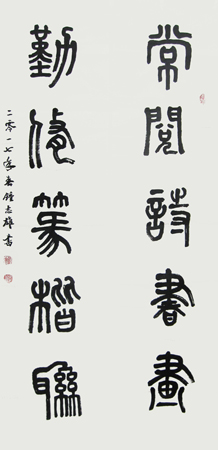 常閱詩書畫
勤修篆楷聯
二零一七年春鍾志雄書